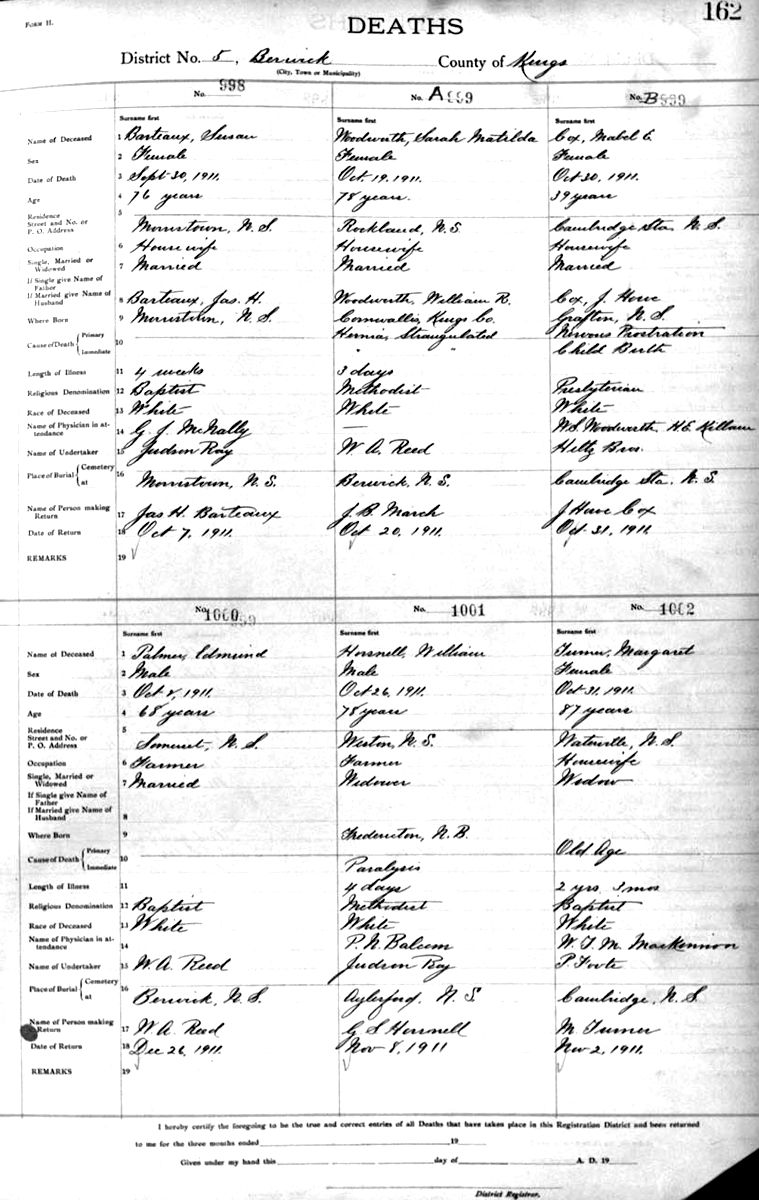 162
FORM H.
DEATHS
District No. 5, Berwick County of Kings
(City, Town or Municipality)
No. 998 No. A 999 No. B 999
Surname first Surname first Surname first
Name of Deceased 1 Barteaux, Susan Woodworth, Sarah Matilda Cox, Mabel E.
Sex 2 Female Female Female
Date of Death 3 Sept 30, 1911. Oct. 19, 1911. Oct 20, 1911.
Age 4 76 years 78 years. 39 years
Residence
Street and No. or
P. O. Address 5 Morristown, N. S. Rockland, N. S. Cambridge Sta. N. S.
Occupation 6 Housewife Housewife Housewife
Single, Married or
Widowed 7 Married Married Married
If Single give Name of
Father
If Married give Name of
Husband 8 Barteaux, Jas. H. Woodworth, William R. Cox, J. Howe
Where Born 9 Morristown, N. S. Cornwallis, Kings Co. Grafton, N. S.
Cause of Death { Primary 10 Hernia, Strangulated Nervous Prostration
Immediate " " Child Birth
Length of Illness 11 4 weeks 3 days
Religious Denomination 12 Baptist Methodist Presbyterian
Race of Deceased 13 White White White
Name of Physician in at-
tendance 14 G. J. McNally — W. S. Woodworth, H. E. Killam
Name of Undertaker 15 Judson Ray W. A. Reed Hiltz Bros.
Place of Burial { Cemetery 16
at Morristown, N. S. Berwick, N. S. Cambridge Sta. N. S.
Name of Person making
Return 17 Jas H. Barteaux J. B. March J Howe Cox
Date of Return 18 Oct 7, 1911. Oct 20, 1911. Oct 31, 1911.
REMARKS 19
No. 1000 No. 1001 No. 1002
Surname first Surname first Surname first
Name of Deceased 1 Palmer, Edmund Horsnell, William Turner, Margaret
Sex 2 Male Male Female
Date of Death 3 Oct 1911. Oct 26, 1911. Oct 31, 1911.
Age 4 68 years 78 years 87 years
Residence
Street and No. or
P. O. Address 5 Somerset, N. S. Weston, N. S. Waterville, N. S.
Occupation 6 Farmer Farmer Housewife
Single, Married or
Widowed 7 Married Widower Widow
If Single give Name of
Father
If Married give Name of
Husband 8
Where Born 9 Fredericton, N. B.
Cause of Death { Primary 10 Old Age
Immediate Paralysis
Length of Illness 11 4 days 2 yrs. 3 mos
Religious Denomination 12 Baptist Methodist Baptist
Race of Deceased 13 White White White
Name of Physician in at-
tendance 14 P. N. Balcom W. T. M. MacKinnon
Name of Undertaker 15 W. A. Reed Judson Ray P. Foote
Place of Burial { Cemetery 16
at Berwick, N. S. Aylesford, N. S. Cambridge, N. S.
Name of Person making
Return 17 W A Reed G S Horsnell M. Turner
Date of Return 18 Dec 26, 1911. Nov 8, 1911 Nov 2, 1911.
REMARKS 19
I hereby certify the foregoing to be the true and correct entries of all Deaths that have taken place in this Registration District and been returned
to me for the three months ended 19
Given under my hand this day of A. D. 19
District Registrar.